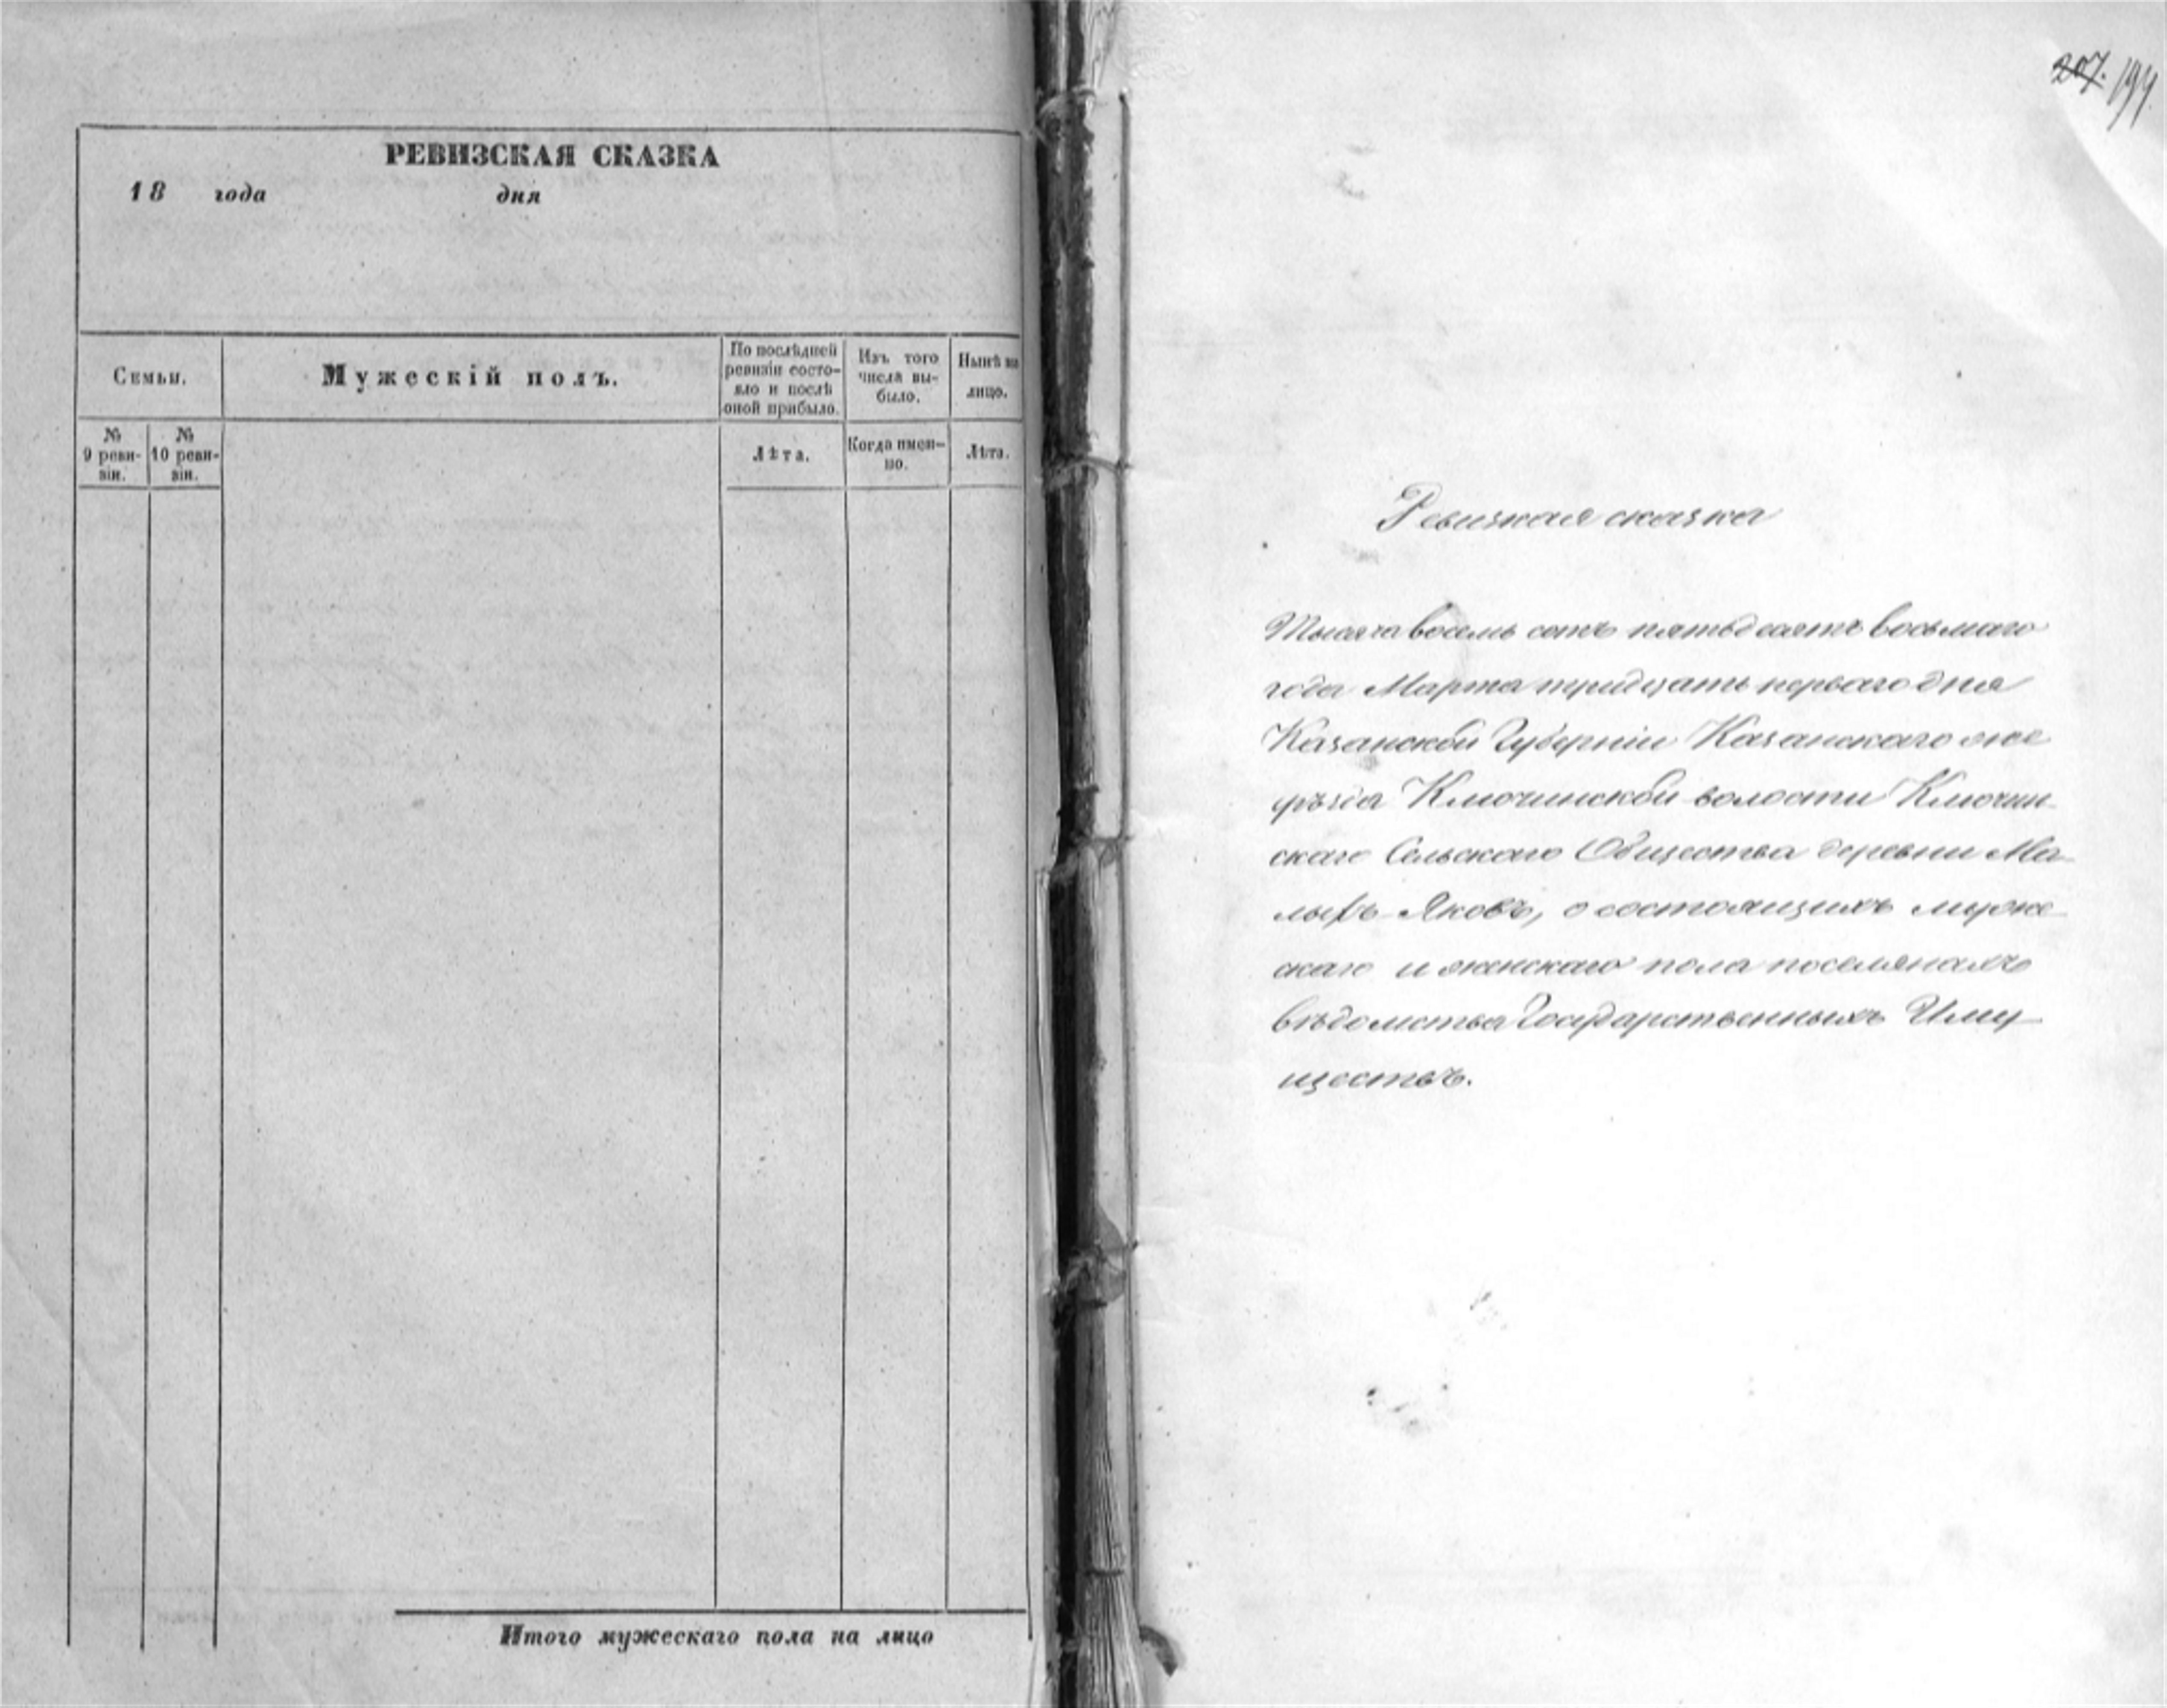 РЕВИЗСКАЯ СКАЗКА
18 года дня
Семьи.
Мужескій полъ.
По послѣдней
ревизіи состо-
яло и послѣ
оной прибыло.
Изъ того
числа вы-
было.
Нынѣ на
лицо.
№
9 реви-
зіи.
№
10 реви-
зіи.
Лѣта.
Когда имен-
но.
Лѣта.
Итого мужескаго пола на лицо
207. 194.
Ревизкая сказка
Тысяча восемь сотъ пятьдесятъ восьмаго
года Марта тридцать перваго дня
Казанской Губерніи Казанскаго оке
руга Ключинской волости Ключин-
скаго Сельскаго Общества деревни Ма-
лыхъ Яковъ, о состоящихъ муже
скаго и женскаго пола поселянахъ
вѣдомства Государственныхъ Иму-
ществъ.